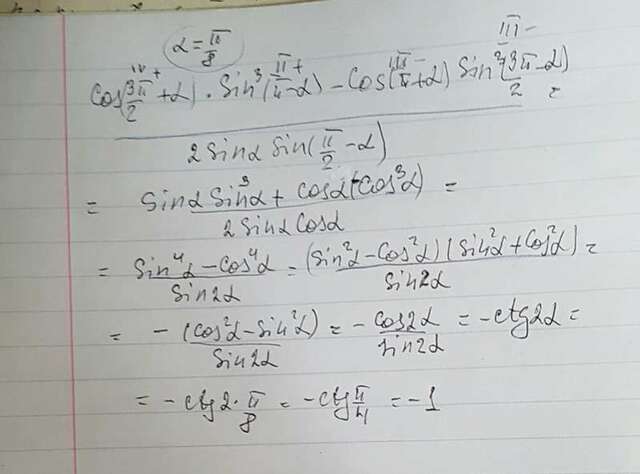 α = π/8
IV + II + III − III −
cos(3π/2 + α) · sin³(π − α) − cos(π + α) sin³(3π/2 − α) =
2 sinα sin(π/2 − α)
= sinα sin³α + cosα(−cos³α) =
2 sinα cosα
= sin⁴α − cos⁴α / sin2α = (sin²α − cos²α)(sin²α + cos²α) / sin2α =
= −(cos²α − sin²α) / sin2α = − cos2α / sin2α = −ctg2α =
= −ctg2·π/8 = −ctg π/4 = −1